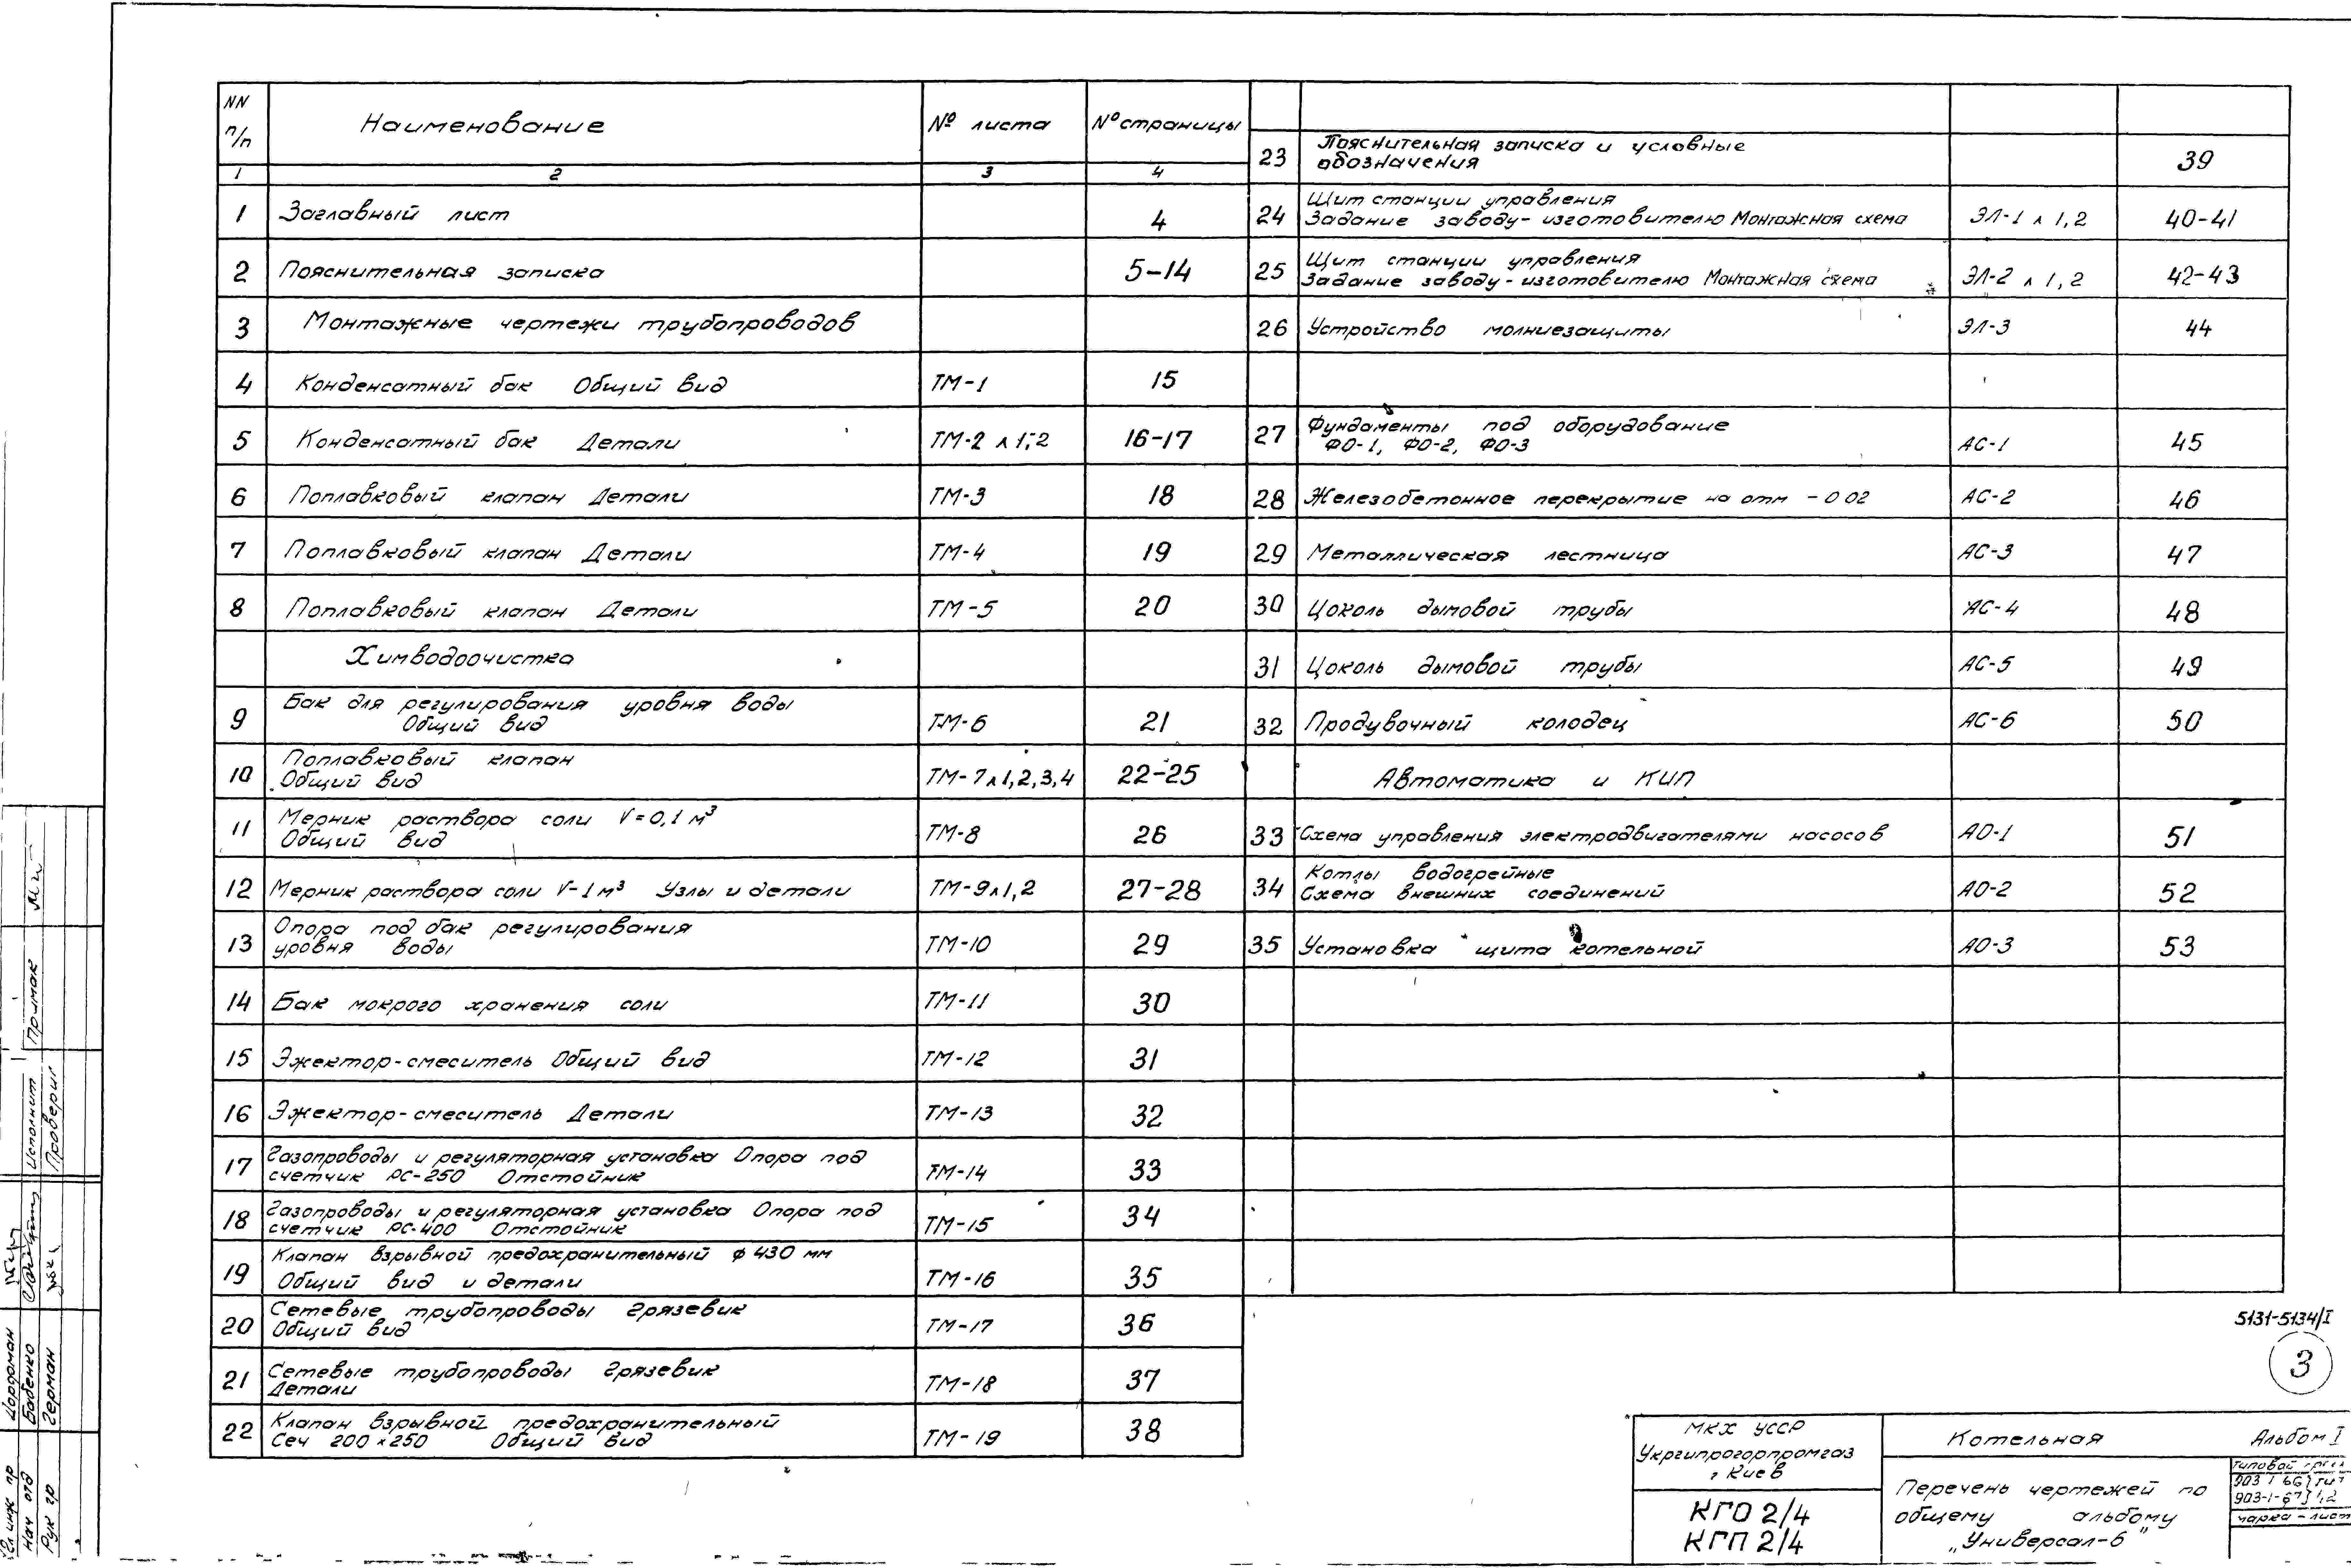 NN п/п Наименование № листа № страницы
1 2 3 4
1 Заглавный лист 4
2 Пояснительная записка 5-14
3 Монтажные чертежи трубопроводов
4 Конденсатный бак Общий вид ТМ-1 15
5 Конденсатный бак Детали ТМ-2 л 1,2 16-17
6 Поплавковый клапан Детали ТМ-3 18
7 Поплавковый клапан Детали ТМ-4 19
8 Поплавковый клапан Детали ТМ-5 20
Химводоочистка
9 Бак для регулирования уровня воды
Общий вид ТМ-6 21
10 Поплавковый клапан
Общий вид ТМ-7 л 1,2,3,4 22-25
11 Мерник раствора соли V=0,1 м³
Общий вид ТМ-8 26
12 Мерник раствора соли V-1 м³ Узлы и детали ТМ-9 л 1,2 27-28
13 Опора под бак регулирования
уровня воды ТМ-10 29
14 Бак мокрого хранения соли ТМ-11 30
15 Эжектор-смеситель Общий вид ТМ-12 31
16 Эжектор-смеситель Детали ТМ-13 32
17 Газопроводы и регуляторная установка Опора под
счетчик РС-250 Отстойник ТМ-14 33
18 Газопроводы и регуляторная установка Опора под
счетчик РС-400 Отстойник ТМ-15 34
19 Клапан взрывной предохранительный ф 430 мм
Общий вид и детали ТМ-16 35
20 Сетевые трубопроводы Грязевик
Общий вид ТМ-17 36
21 Сетевые трубопроводы Грязевик
Детали ТМ-18 37
22 Клапан взрывной предохранительный
Сеч 200×250 Общий вид ТМ-19 38
23 Пояснительная записка и условные
обозначения 39
24 Щит станции управления
Задание заводу-изготовителю Монтажная схема ЭЛ-1 л 1,2 40-41
25 Щит станции управления
Задание заводу-изготовителю Монтажная схема ЭЛ-2 л 1,2 42-43
26 Устройство молниезащиты ЭЛ-3 44
27 Фундаменты под оборудование
ФО-1, ФО-2, ФО-3 АС-1 45
28 Железобетонное перекрытие на отм -0 02 АС-2 46
29 Металлическая лестница АС-3 47
30 Цоколь дымовой трубы АС-4 48
31 Цоколь дымовой трубы АС-5 49
32 Продувочный колодец АС-6 50
Автоматика и КИП
33 Схема управления электродвигателями насосов АО-1 51
34 Котлы водогрейные
Схема внешних соединений АО-2 52
35 Установка щита котельной АО-3 53
5131-5134/I
3
МКХ УССР
Укргипрогорпромгаз
г Киев
КГО 2/4
КГП 2/4
Котельная Альбом I
Перечень чертежей по
общему альбому
„Универсал-6"
Типовой
903-1-66
903-1-67
марка-лист
Гл инж пр
Нач отд Бабенко
Рук гр Герман
Исполнит Примак
Проверил